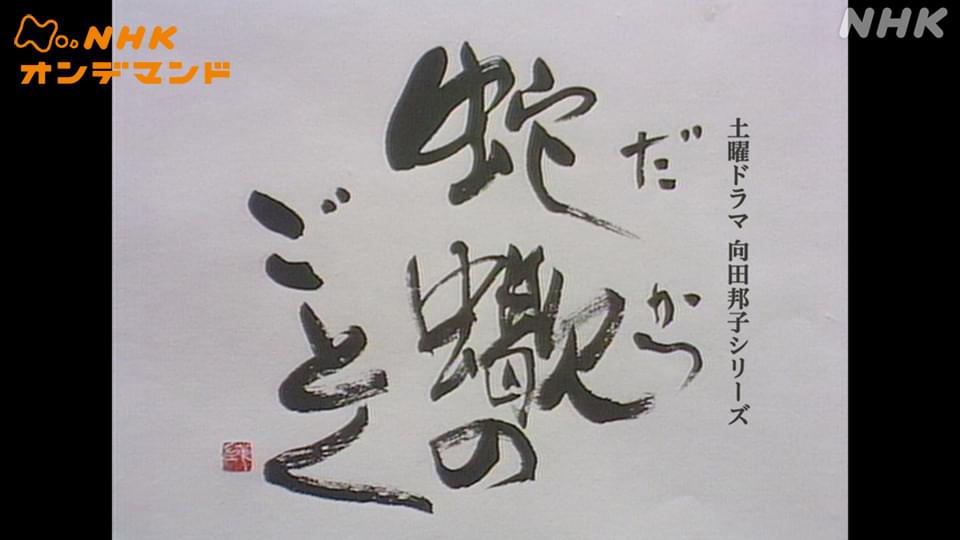 NHK
オンデマンド
NHK
土曜ドラマ 向田邦子シリーズ
だかつ
蛇蝎の
ごとく